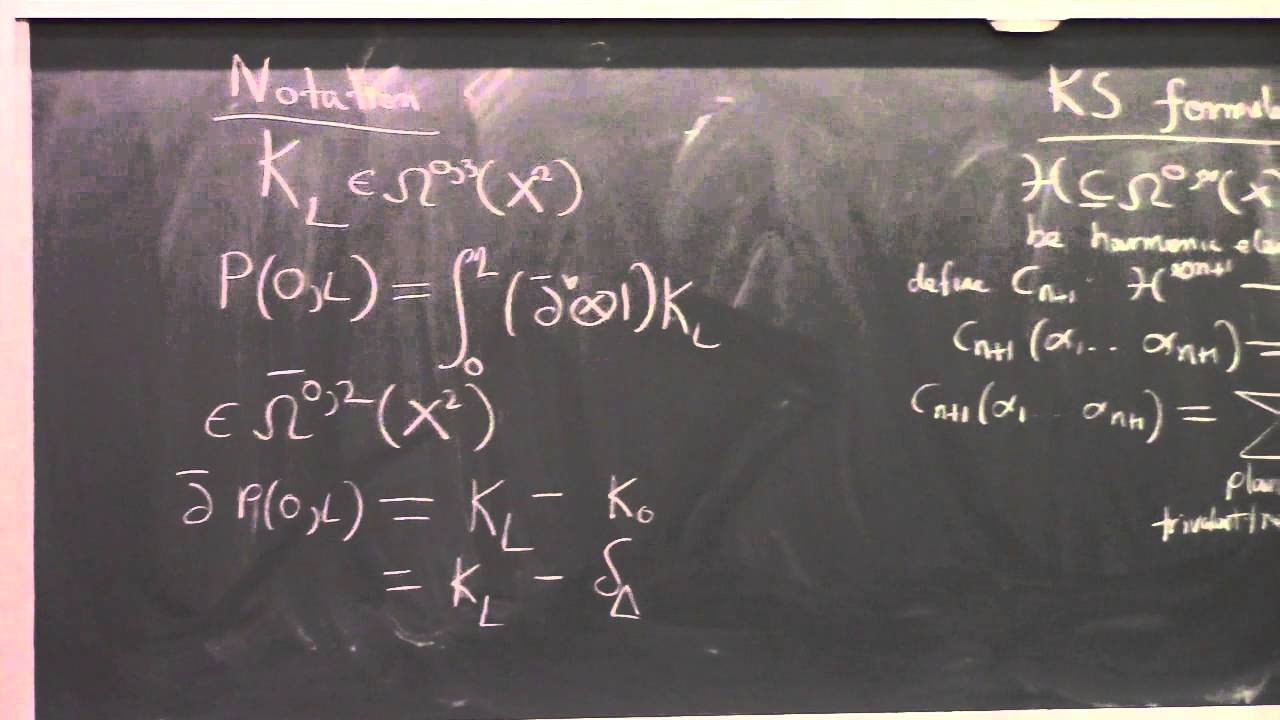 Notation
K_L ∈ Ω^{0,3}(X^2)
P(0,L) = ∫_0^L (∂̄^* ⊗ 1) K_L
∈ Ω̄^{0,2}(X^2)
∂̄ P(0,L) = K_L − K_0
= K_L − δ_Δ
KS formul
ℋ ⊆ Ω^{0,*}(X
be harmonic ele
define C_{n+1} : ℋ^{⊗n+1} —
C_{n+1}(α_1 .. α_{n+1}) =
C_{n+1}(α_1 .. α_{n+1}) = Σ
plan
trivalent tr